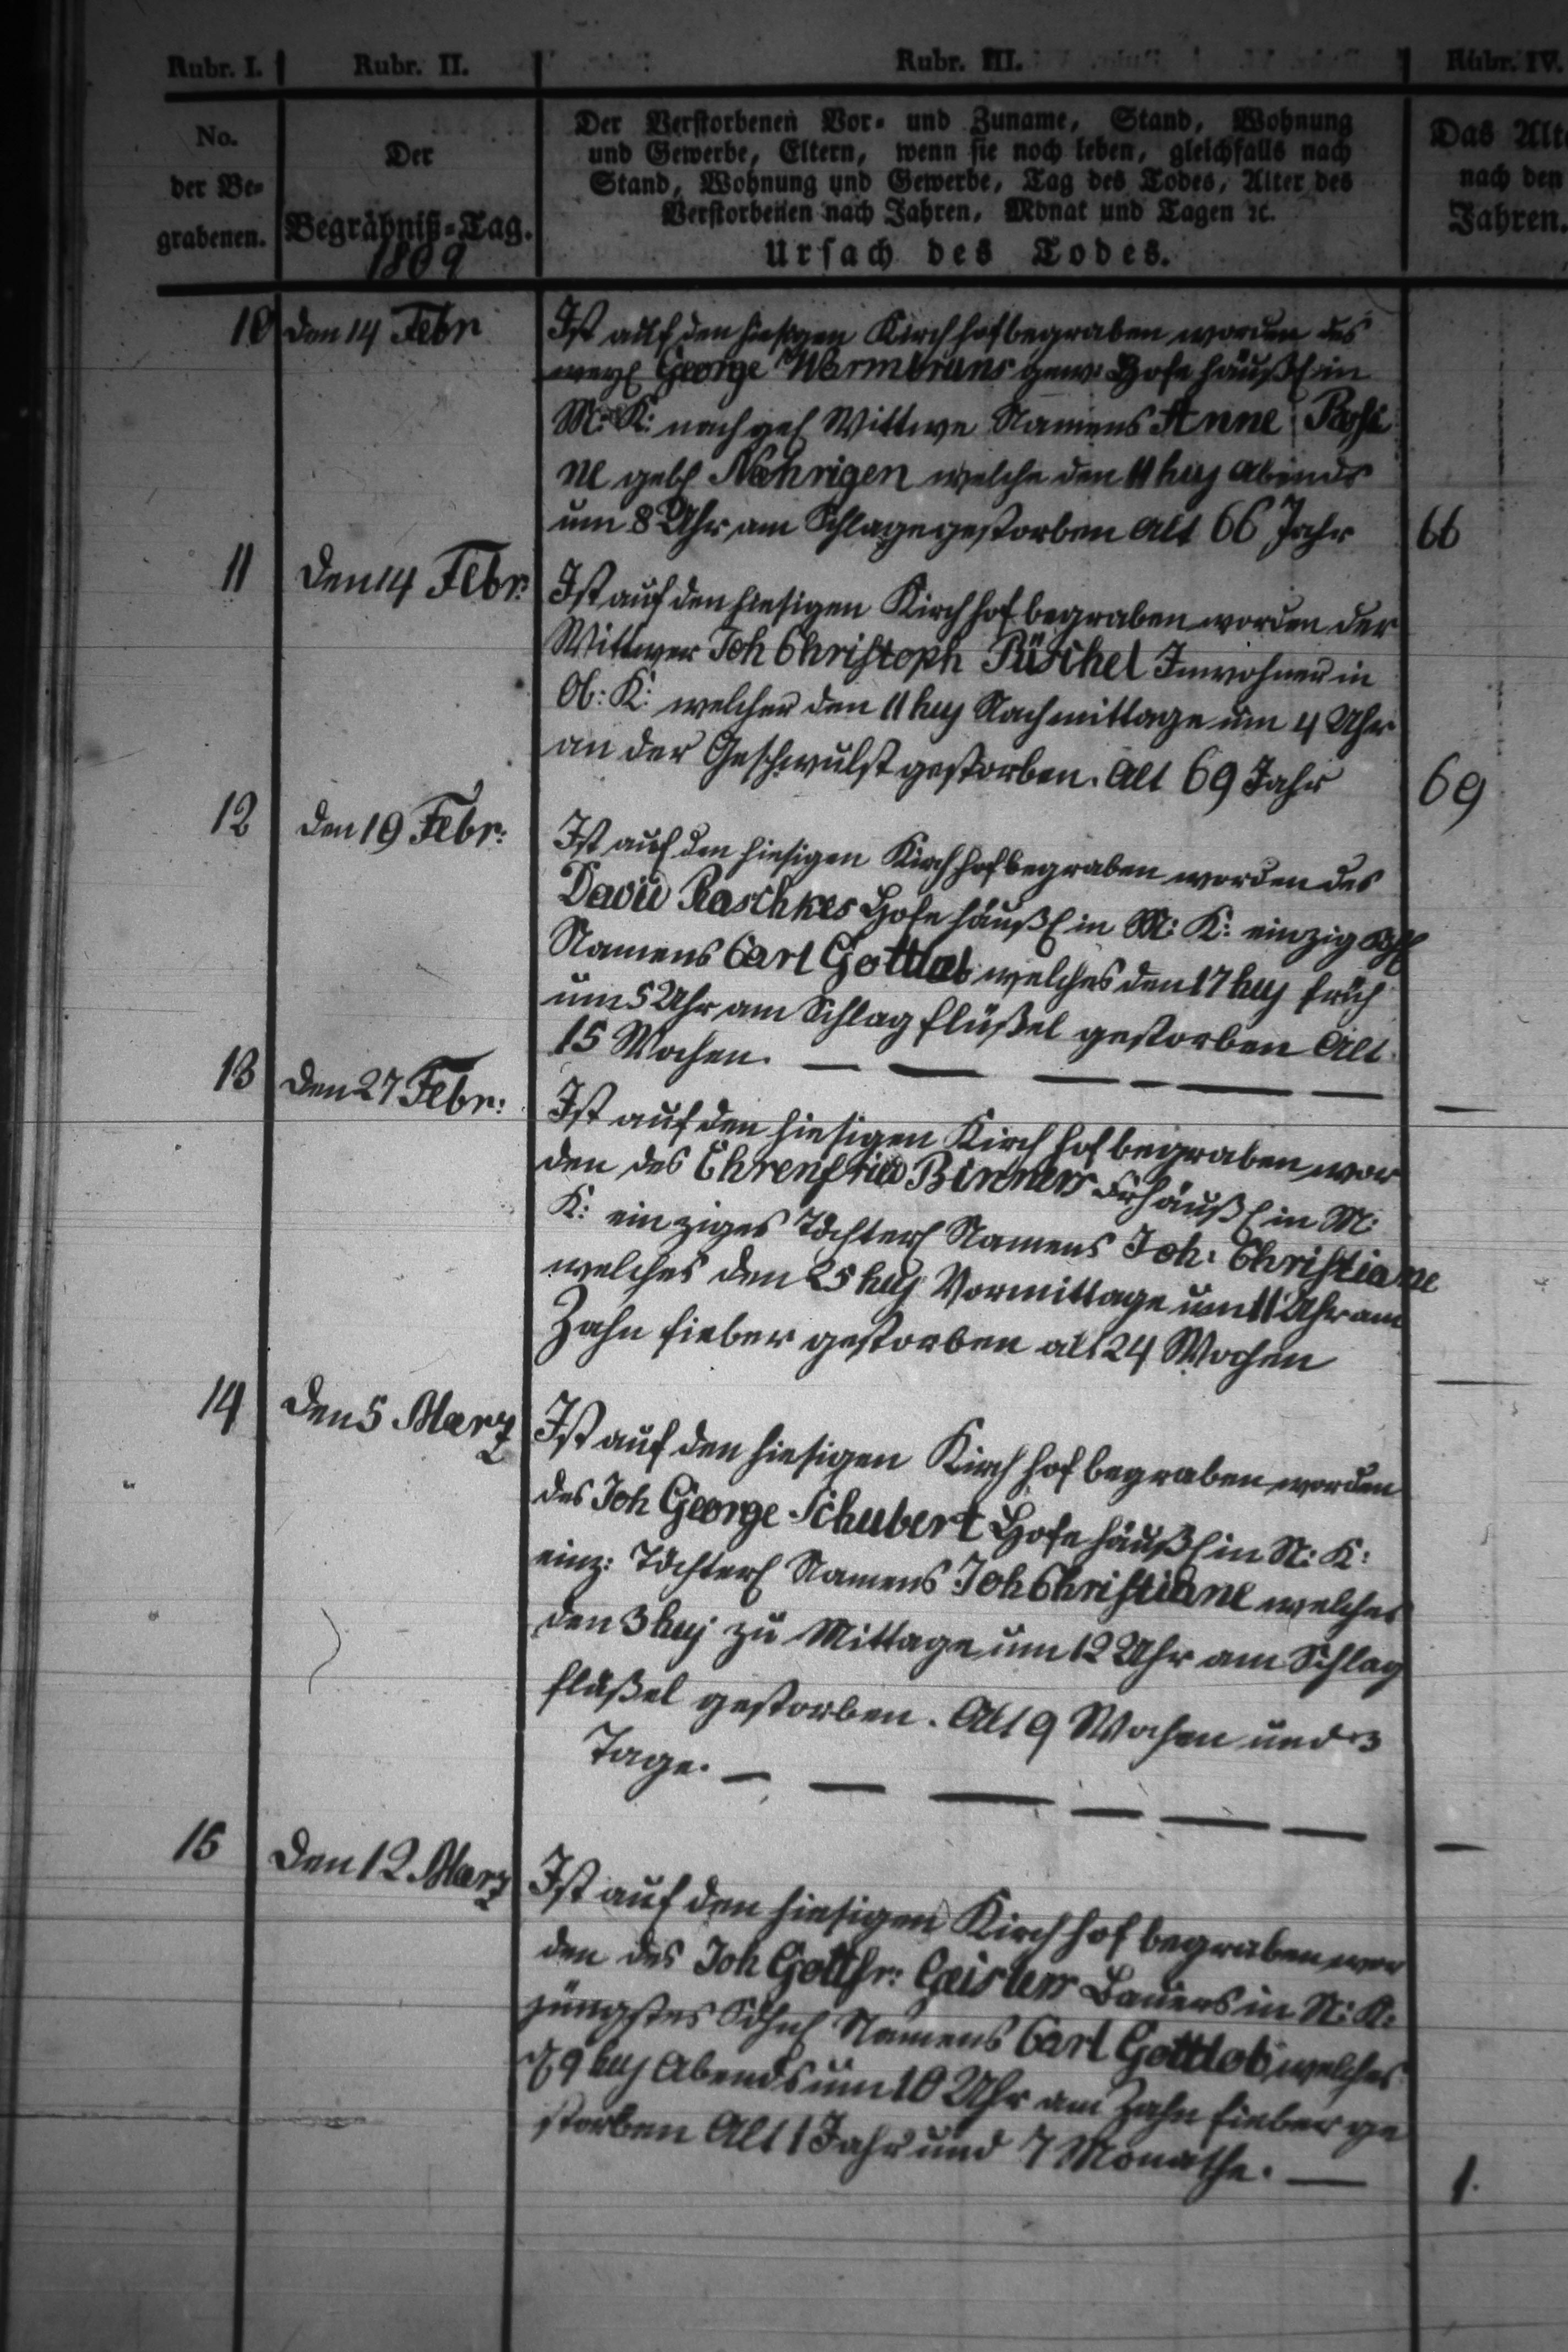 Rubr. I. Rubr. II. Rubr. III. Rubr. IV.
No.
der Be-
grabenen.
Der
Begräbniß-Tag.
1809
Der Verstorbenen Vor- und Zuname, Stand, Wohnung
und Gewerbe, Eltern, wenn sie noch leben, gleichfalls nach
Stand, Wohnung und Gewerbe, Tag des Todes, Alter des
Verstorbenen nach Jahren, Monat und Tagen ꝛc.
Ursach des Todes.
Das Alt
nach den
Jahren.
10 den 14 Febr
Ist auf den hiesigen Kirchhof begraben worden des
weyl George Warmbruns gew: Hofehäußl in
M: K: nachgel Wittwe Namens Anne Rosi
ne gebl Nährigen welche den 11 huj Abends
um 8 Uhr am Schlage gestorben Alt 66 Jahr 66
11 den 14 Febr:
Ist auf den hiesigen Kirchhof begraben worden der
Wittwer Joh Christoph Püschel Inwohner in
Ob: K: welcher den 11 huj Nachmittage um 4 Uhr
an der Geschwulst gestorben. Alt 69 Jahr 69
12 den 19 Febr:
Ist auf den hiesigen Kirchhof begraben worden des
David Raschkes Hofehäußl in M: K: einzig
Namens Carl Gottlob welches den 17 huj früh
um 5 Uhr am Schlagflüßel gestorben Alt
15 Wochen. —
13 den 27 Febr:
Ist auf den hiesigen Kirchhof begraben wor
den des Ehrenfried Binners häußl in M:
K: einziges Töchterl Namens Joh: Christiane
welches den 25 huj Vormittage um 11 Uhr am
Zahnfieber gestorben alt 24 Wochen —
14 den 5 Marz
Ist auf den hiesigen Kirchhof begraben worden
des Joh George Schubert Hofehäußl in N: K:
einz: Töchterl Namens Joh Christiane welches
den 3 huj zu Mittage um 12 Uhr am Schlag
flüßel gestorben. Alt 9 Wochen und 3
Tage. —
15 den 12 Marz
Ist auf den hiesigen Kirchhof begraben wor
den des Joh Gottfr: Geislers Bauers in N: K:
jüngstes Söhnl Namens Carl Gottlob welches
d 9 huj Abends um 10 Uhr am Zahnfieber ge
storben Alt 1 Jahr und 7 Monathe. — 1.